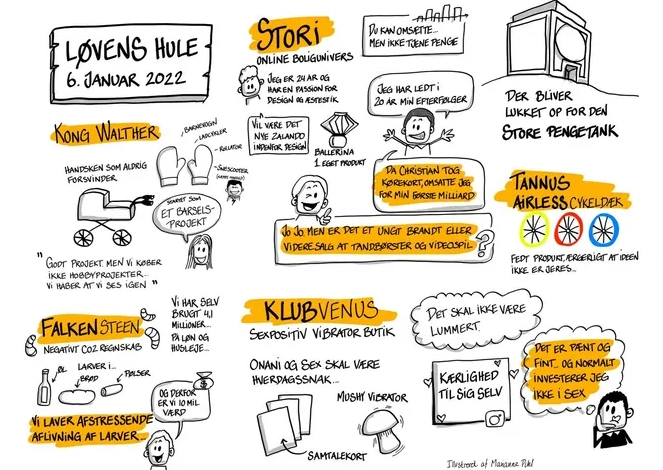 LØVENS HULE
6. JANUAR 2022
STORI
ONLINE BOLIGUNIVERS
JEG ER 24 ÅR OG
HAR EN PASSION FOR
DESIGN OG ÆSTESTIK
VIL VÆRE DET
NYE ZALANDO
INDENFOR DESIGN
BALLERINA
1 EGET PRODUKT
DU KAN OMSÆTTE...
MEN IKKE TJENE PENGE
JEG HAR LEDT I
20 ÅR MIN EFTERFØLGER
DA CHRISTIAN TOG
KØREKORT, OMSATTE JEG
FOR MIN FØRSTE MILLIARD
JO JO, MEN ER DET ET UNGT BRANDT ELLER
VIDERESALG AF TANDBØRSTER OG VIDEOSPIL
?
DER BLIVER
LUKKET OP FOR DEN
STORE PENGETANK
KONG WALTHER
HANDSKEN SOM ALDRIG
FORSVINDER
BARNEVOGN
LADCYKLER
ROLLATOR
SNESCOOTER
STARTET SOM
ET BARSELS-
PROJEKT
"GODT PROJEKT MEN VI KØBER
IKKE HOBBYPROJEKTER...
VI HÅBER AT VI SES IGEN"
TANNUS
AIRLESS CYKELDÆK
FEDT PRODUKT, ÆRGERLIGT AT IDEEN
IKKE ER JERES...
FALKENSTEEN
NEGATIVT CO2 REGNSKAB
VI HAR SELV
BRUGT 4,1
MILLIONER...
PÅ LØN OG
HUSLEJE...
ØL
LARVER I...
BRØD
PØLSER
OG DERFOR
ER VI 10 MIL
VÆRD
VI LAVER AFSTRESSENDE
AFLIVNING AF LARVER...
KLUBVENUS
SEXPOSITIV VIBRATOR BUTIK
ONANI OG SEX SKAL VÆRE
HVERDAGSSNAK...
MUSHY VIBRATOR
SAMTALEKORT
DET SKAL IKKE VÆRE
LUMMERT.
KÆRLIGHED
TIL SIG SELV
DET ER PÆNT OG
FINT... OG NORMALT
INVESTERER JEG
IKKE I SEX
Illustreret af Marianne